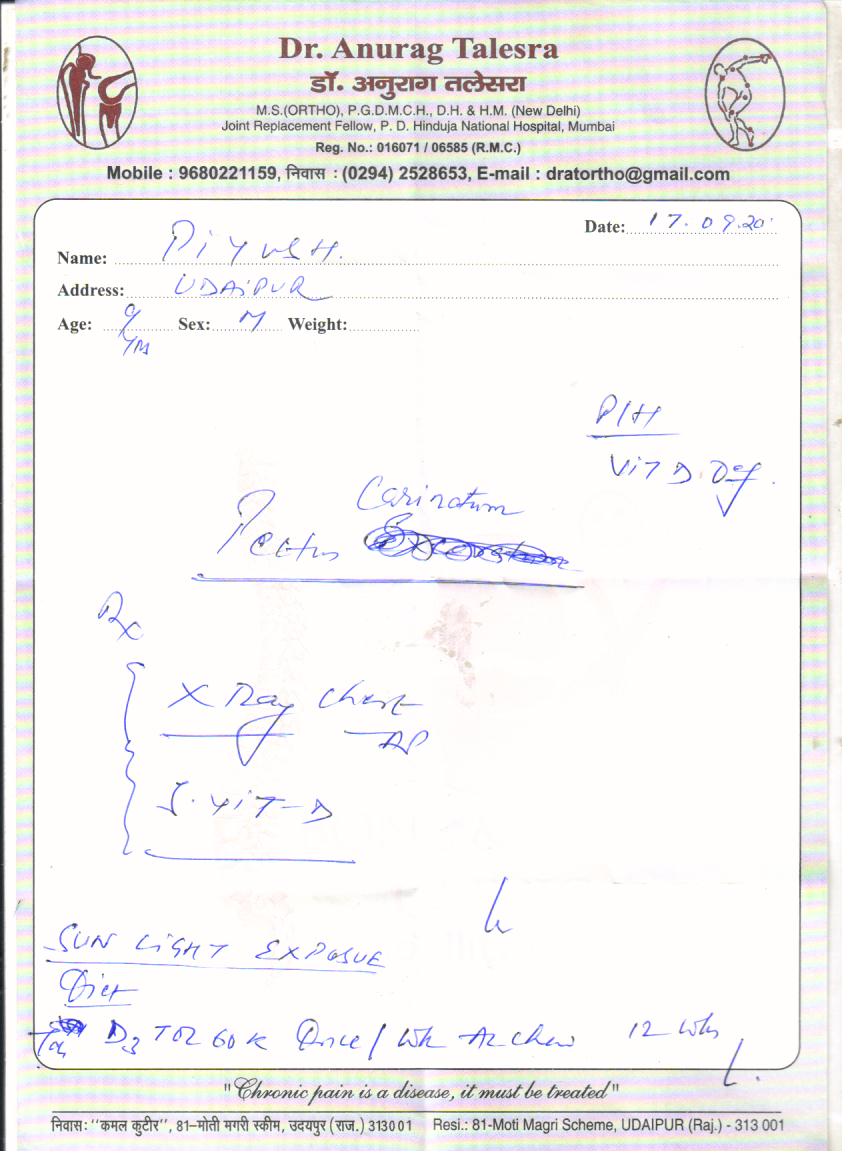 Dr. Anurag Talesra
डॉ. अनुराग तलेसरा
M.S.(ORTHO), P.G.D.M.C.H., D.H. & H.M. (New Delhi)
Joint Replacement Fellow, P. D. Hinduja National Hospital, Mumbai
Reg. No.: 016071 / 06585 (R.M.C.)
Mobile : 9680221159, निवास : (0294) 2528653, E-mail : dratortho@gmail.com
Date: 17.09.20
Name: PiYUSH.
Address: UDAiPUR
Age: 9 Sex: M Weight:
Yrs
P/H
ViT D Def.
Carinatum
Pectus
Rx
X Ray Chest
AP
S. ViT-D
SUN LiGHT EXPOSUE
Diet
Tab D3 TOR 60K Once/Wk 12 Wks
"Chronic pain is a disease, it must be treated"
निवास: "कमल कुटीर", 81-मोती मगरी स्कीम, उदयपुर (राज.) 313001 Resi.: 81-Moti Magri Scheme, UDAIPUR (Raj.) - 313 001